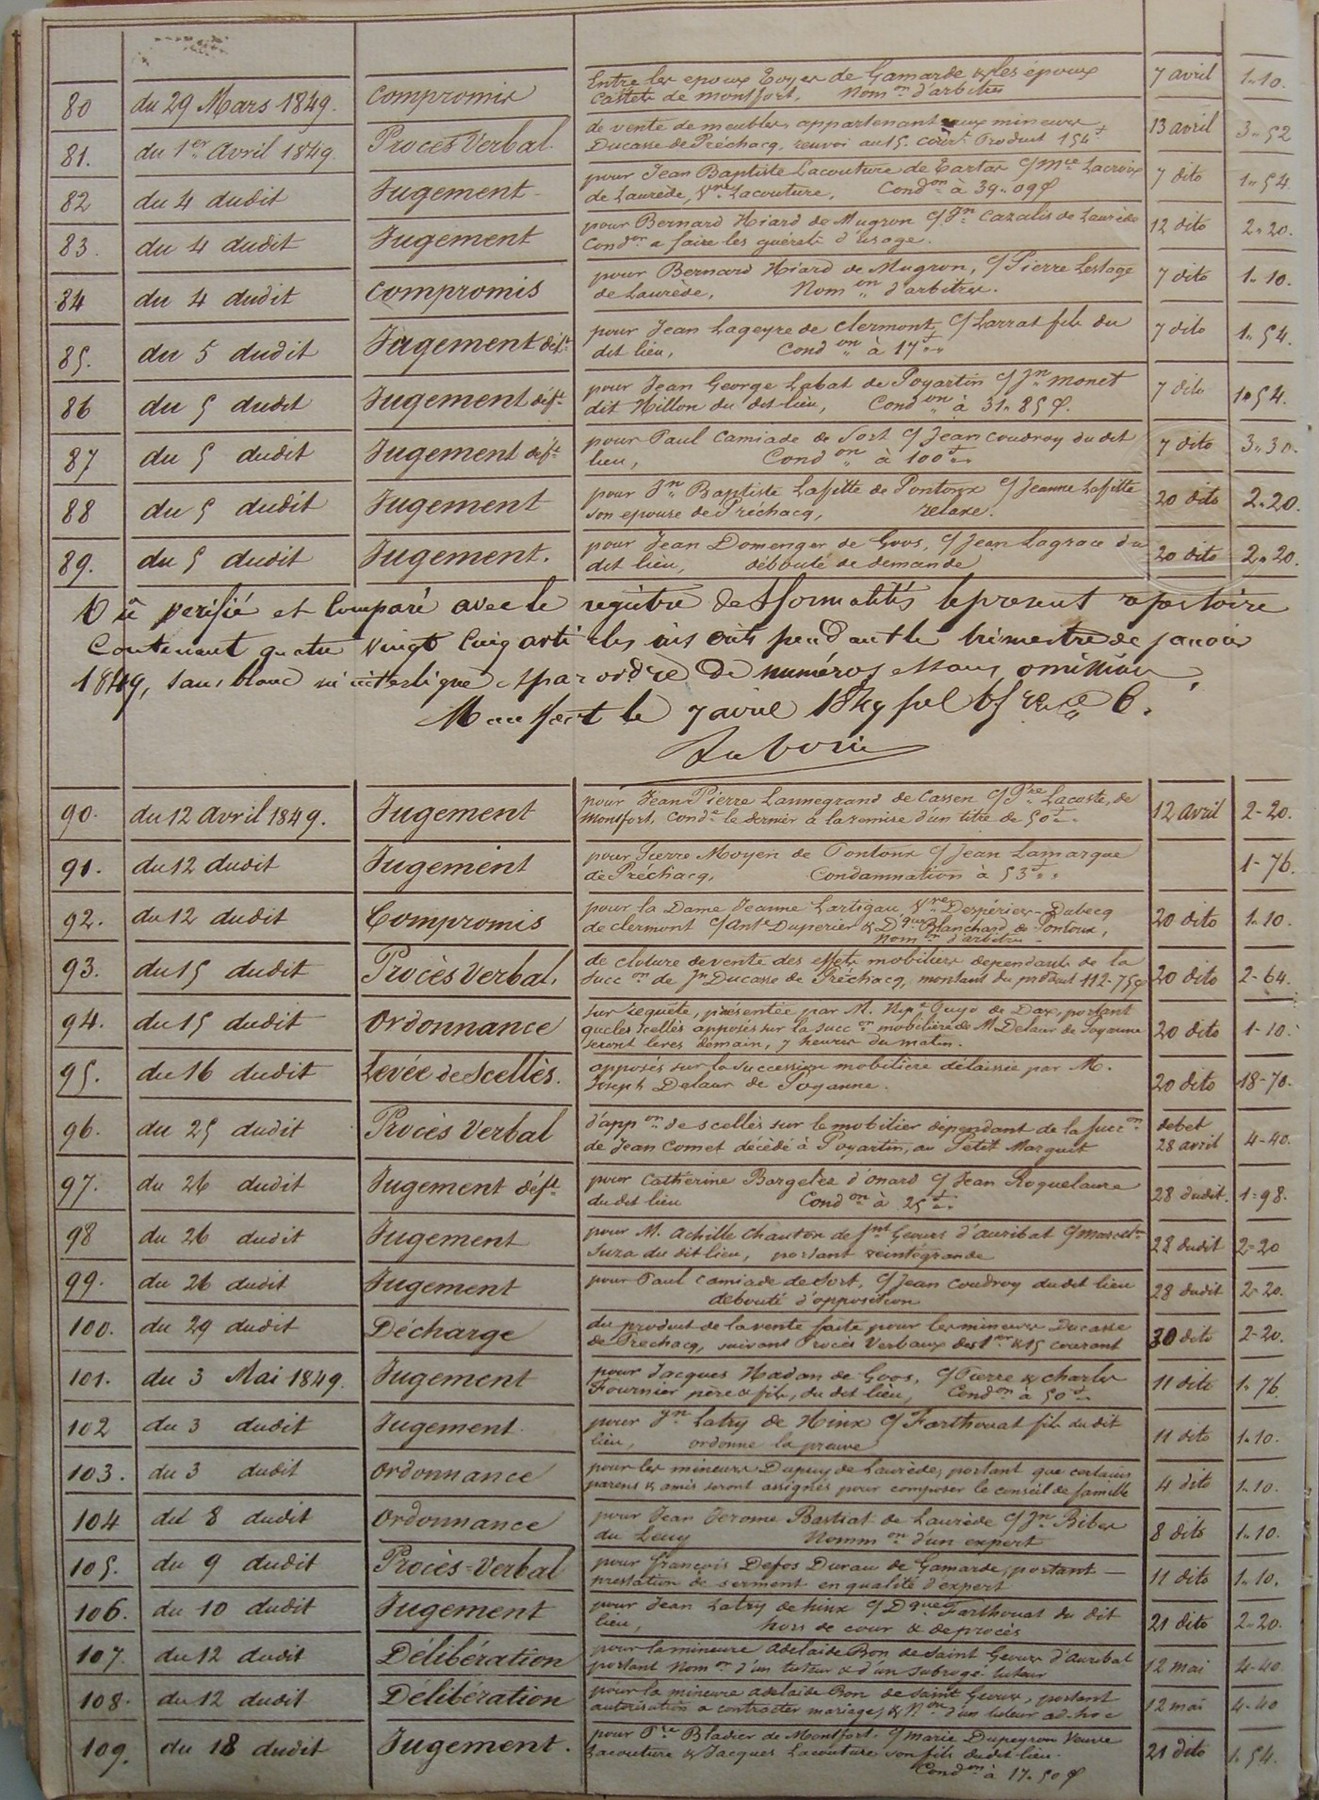 80 du 29 Mars 1849. Compromis Entre les epoux Goyer de Gamarde & les époux 7 avril 1-10.
Castets de montfort, Nom.on d'arbitres
81. du 1er Avril 1849 Procès Verbal de vente de meubles appartenant aux mineurs 13 avril 3-52
Ducasse de Préchacq, renvoi au 15. cour.t Produit 154f
82 du 4 dudit Jugement pour Jean Baptiste Lacouture de Tartas c/ Lacroix 7 dito 1-54
de Laurède, Vve Lacouture, Cond.on à 39-09c
83. du 4 dudit Jugement pour Bernard Hiard de Mugron c/ Jn Cazalis de Laurède 12 dito 2-20.
Cond.on a faire les guérets d'usage.
84 du 4 dudit Compromis pour Bernard Hiard de Mugron, c/ Pierre Lestage 7 dito 1-10.
de Laurède, Nom.on d'arbitres.
85. du 5 dudit Jugement déft pour Jean Lageyre de Clermont, c/ Larrat fils du 7 dito 1-54.
dit lieu, Cond.on à 17f
86 du 5 dudit Jugement déft pour Jean George Labat de Poyartin c/ Jn monet 7 dito 1-54.
dit Hillon du dit lieu, Cond.on à 31-85c.
87 du 5 dudit Jugement déft pour Paul Camiade de Sort c/ Jean Coudroy du dit 7 dito 3-30.
lieu, Cond.on à 100f
88 du 5 dudit Jugement pour Jn Baptiste Lafitte de Pontonx c/ Jeanne Lafitte 20 dito 2-20.
son epouse de Préchacq, relaxe.
89. du 5 dudit Jugement. pour Jean Domenger de Goos, c/ Jean Lagrace du 20 dito 2-20.
dit lieu, débouté de demande
Vû verifié et Comparé avec le registre des formalités le present repertoire
Contenant quatre vingt cinq articles inscrits pendant le trimestre de janvier
1849, sans blanc ni interligne et par ordre de numéros et sans omission.
Montfort le 7 avril 1849
Dubosq
90. du 12 Avril 1849. Jugement pour Jean Pierre Lannegrand de Cassen c/ Pre Lacoste, de 12 Avril 2-20.
Monfort, Cond.é le dernier à la remise d'un titre de 50f
91. du 12 dudit Jugement pour Pierre Moyen de Pontonx c/ Jean Lamarque 1-76.
de Préchacq, Condamnation à 53f
92. du 12 dudit Compromis pour la Dame Jeanne Lartigau Vve Despériers-Dabecq 20 dito 1-10.
de clermont c/ Ante Duperier & Dque Blanchard de Pontonx,
Nom.on d'arbitres
93. du 15 dudit Procès Verbal, de cloture de vente des effets mobiliers dependants de la 20 dito 2-64.
Succ.on de Jn Ducasse de Préchacq, montant du produit 112-75c
94. du 15 dudit Ordonnance sur requête, présentée par M. Guyo de Dax, portant 20 dito 1-10.
que les scellés apposés sur la succ.on mobilière de M. Delaur de Poyanne
seront levés demain, 7 heures du matin.
95. du 16 dudit Levée de Scellés. apposés sur la succession mobilière délaissée par M. 20 dito 18-70.
Joseph Delaur de Poyanne.
96. du 25 dudit Procès Verbal d'app.on de scellés sur le mobilier dépendant de la succ.on debet 28 avril 4-40.
de Jean Comet décédé à Poyartin, au Petit Marquit
97. du 26 dudit Jugement déft pour Catherine Bargelès d'onard c/ Jean Roquelaure 28 dudit. 1-98.
du dit lieu Cond.on à 25f
98 du 26 dudit Jugement pour M. Achille Chanton de St Geours d'auribat c/ 28 dudit 2-20
du dit lieu, portant réintégrande
99. du 26 dudit Jugement pour Paul Camiade de Sort, c/ Jean Coudroy du dit lieu 28 dudit 2-20.
debouté d'opposition
100. du 29 dudit Décharge du produit de la vente faite pour les mineurs Ducasse 30 dito 2-20.
de Prechacq, suivant Procès Verbaux des 1er & 15 courant
101. du 3 Mai 1849. Jugement pour Jacques Hadan de Goos, c/ Pierre & charles 11 dito 1-76
Fournier père & fils, du dit lieu, Cond.on à 50f
102 du 3 dudit Jugement pour Jn Latry de Hinx c/ Farthouat fils du dit 11 dito 1-10.
lieu, ordonne la preuve
103. du 3 dudit Ordonnance pour les mineurs Dupuy de Laurède, portant que certains 4 dito 1-10.
parens & amis seront assignés pour composer le conseil de famille
104 du 8 dudit Ordonnance pour Jean Jerome Bastiat de Laurède c/ Jn Bibes 8 dito 1-10.
du Leuy Nomm.on d'un expert
105. du 9 dudit Procès-Verbal pour François Defos Durau de Gamarde, portant 11 dito 1-10.
prestation de serment en qualité d'expert
106. du 10 dudit Jugement pour Jean Latry de hinx c/ Dque Farthouat du dit 21 dito 2-20.
lieu, hors de cour & de procès
107. du 12 dudit Délibération pour la mineure Adelaide Bon de Saint Geours d'Auribat 12 mai 4-40
portant Nom.on d'un tuteur & d'un subrogé tuteur
108. du 12 dudit Délibération pour la mineure adelaide Bon de Saint Geours, portant 12 mai 4-40
autorisation a contracter mariage, & N.on d'un tuteur ad-hoc
109. du 18 dudit Jugement. pour Pre Bladier de Montfort c/ Marie Dupeyron Veuve 21 dito 1-54.
Lacouture & Jacques Lacouture son fils du dit lieu.
Cond.on à 17-50c